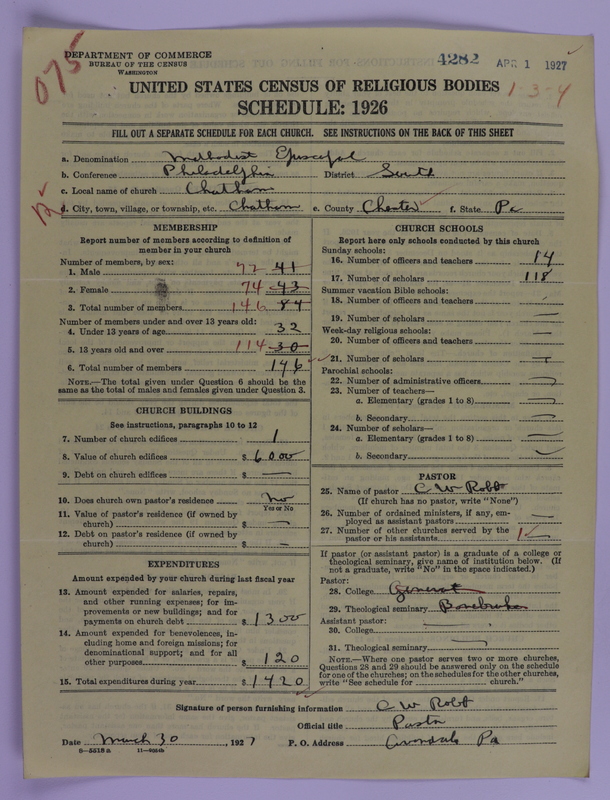 075
DEPARTMENT OF COMMERCE
BUREAU OF THE CENSUS
WASHINGTON
4282 APR 1 1927
UNITED STATES CENSUS OF RELIGIOUS BODIES
1-3-4
SCHEDULE: 1926
FILL OUT A SEPARATE SCHEDULE FOR EACH CHURCH. SEE INSTRUCTIONS ON THE BACK OF THIS SHEET
a. Denomination Methodist Episcopal
b. Conference Philadelphia District South
c. Local name of church Chatham
d. City, town, village, or township, etc. Chatham e. County Chester f. State Pa
MEMBERSHIP
Report number of members according to definition of member in your church
Number of members, by sex:
1. Male 72 41
2. Female 74 43
3. Total number of members 146 84
Number of members under and over 13 years old:
4. Under 13 years of age 32
5. 13 years old and over 114 30
6. Total number of members 146
NOTE.—The total given under Question 6 should be the same as the total of males and females given under Question 3.
CHURCH BUILDINGS
See instructions, paragraphs 10 to 12
7. Number of church edifices 1
8. Value of church edifices $ 6000
9. Debt on church edifices $ —
10. Does church own pastor's residence No
Yes or No
11. Value of pastor's residence (if owned by church) $ —
12. Debt on pastor's residence (if owned by church) $ —
EXPENDITURES
Amount expended by your church during last fiscal year
13. Amount expended for salaries, repairs, and other running expenses; for improvements or new buildings; and for payments on church debt $ 1300
14. Amount expended for benevolences, including home and foreign missions; for denominational support; and for all other purposes $ 120
15. Total expenditures during year $ 1420
CHURCH SCHOOLS
Report here only schools conducted by this church
Sunday schools:
16. Number of officers and teachers 14
17. Number of scholars 118
Summer vacation Bible schools:
18. Number of officers and teachers —
19. Number of scholars —
Week-day religious schools:
20. Number of officers and teachers —
21. Number of scholars —
Parochial schools:
22. Number of administrative officers —
23. Number of teachers—
a. Elementary (grades 1 to 8) —
b. Secondary —
24. Number of scholars—
a. Elementary (grades 1 to 8) —
b. Secondary —
PASTOR
25. Name of pastor C W Robb
(If church has no pastor, write "None")
26. Number of ordained ministers, if any, employed as assistant pastors —
27. Number of other churches served by the pastor or his assistants 1
If pastor (or assistant pastor) is a graduate of a college or theological seminary, give name of institution below. (If not a graduate, write "No" in the space indicated.)
Pastor:
28. College
29. Theological seminary Bonebrake
Assistant pastor:
30. College —
31. Theological seminary —
NOTE.—Where one pastor serves two or more churches, Questions 28 and 29 should be answered only on the schedule for one of the churches; on the schedules for the other churches, write "See schedule for church."
Signature of person furnishing information C W Robb
Official title Pastor
Date March 30, 1927 P. O. Address Avondale Pa